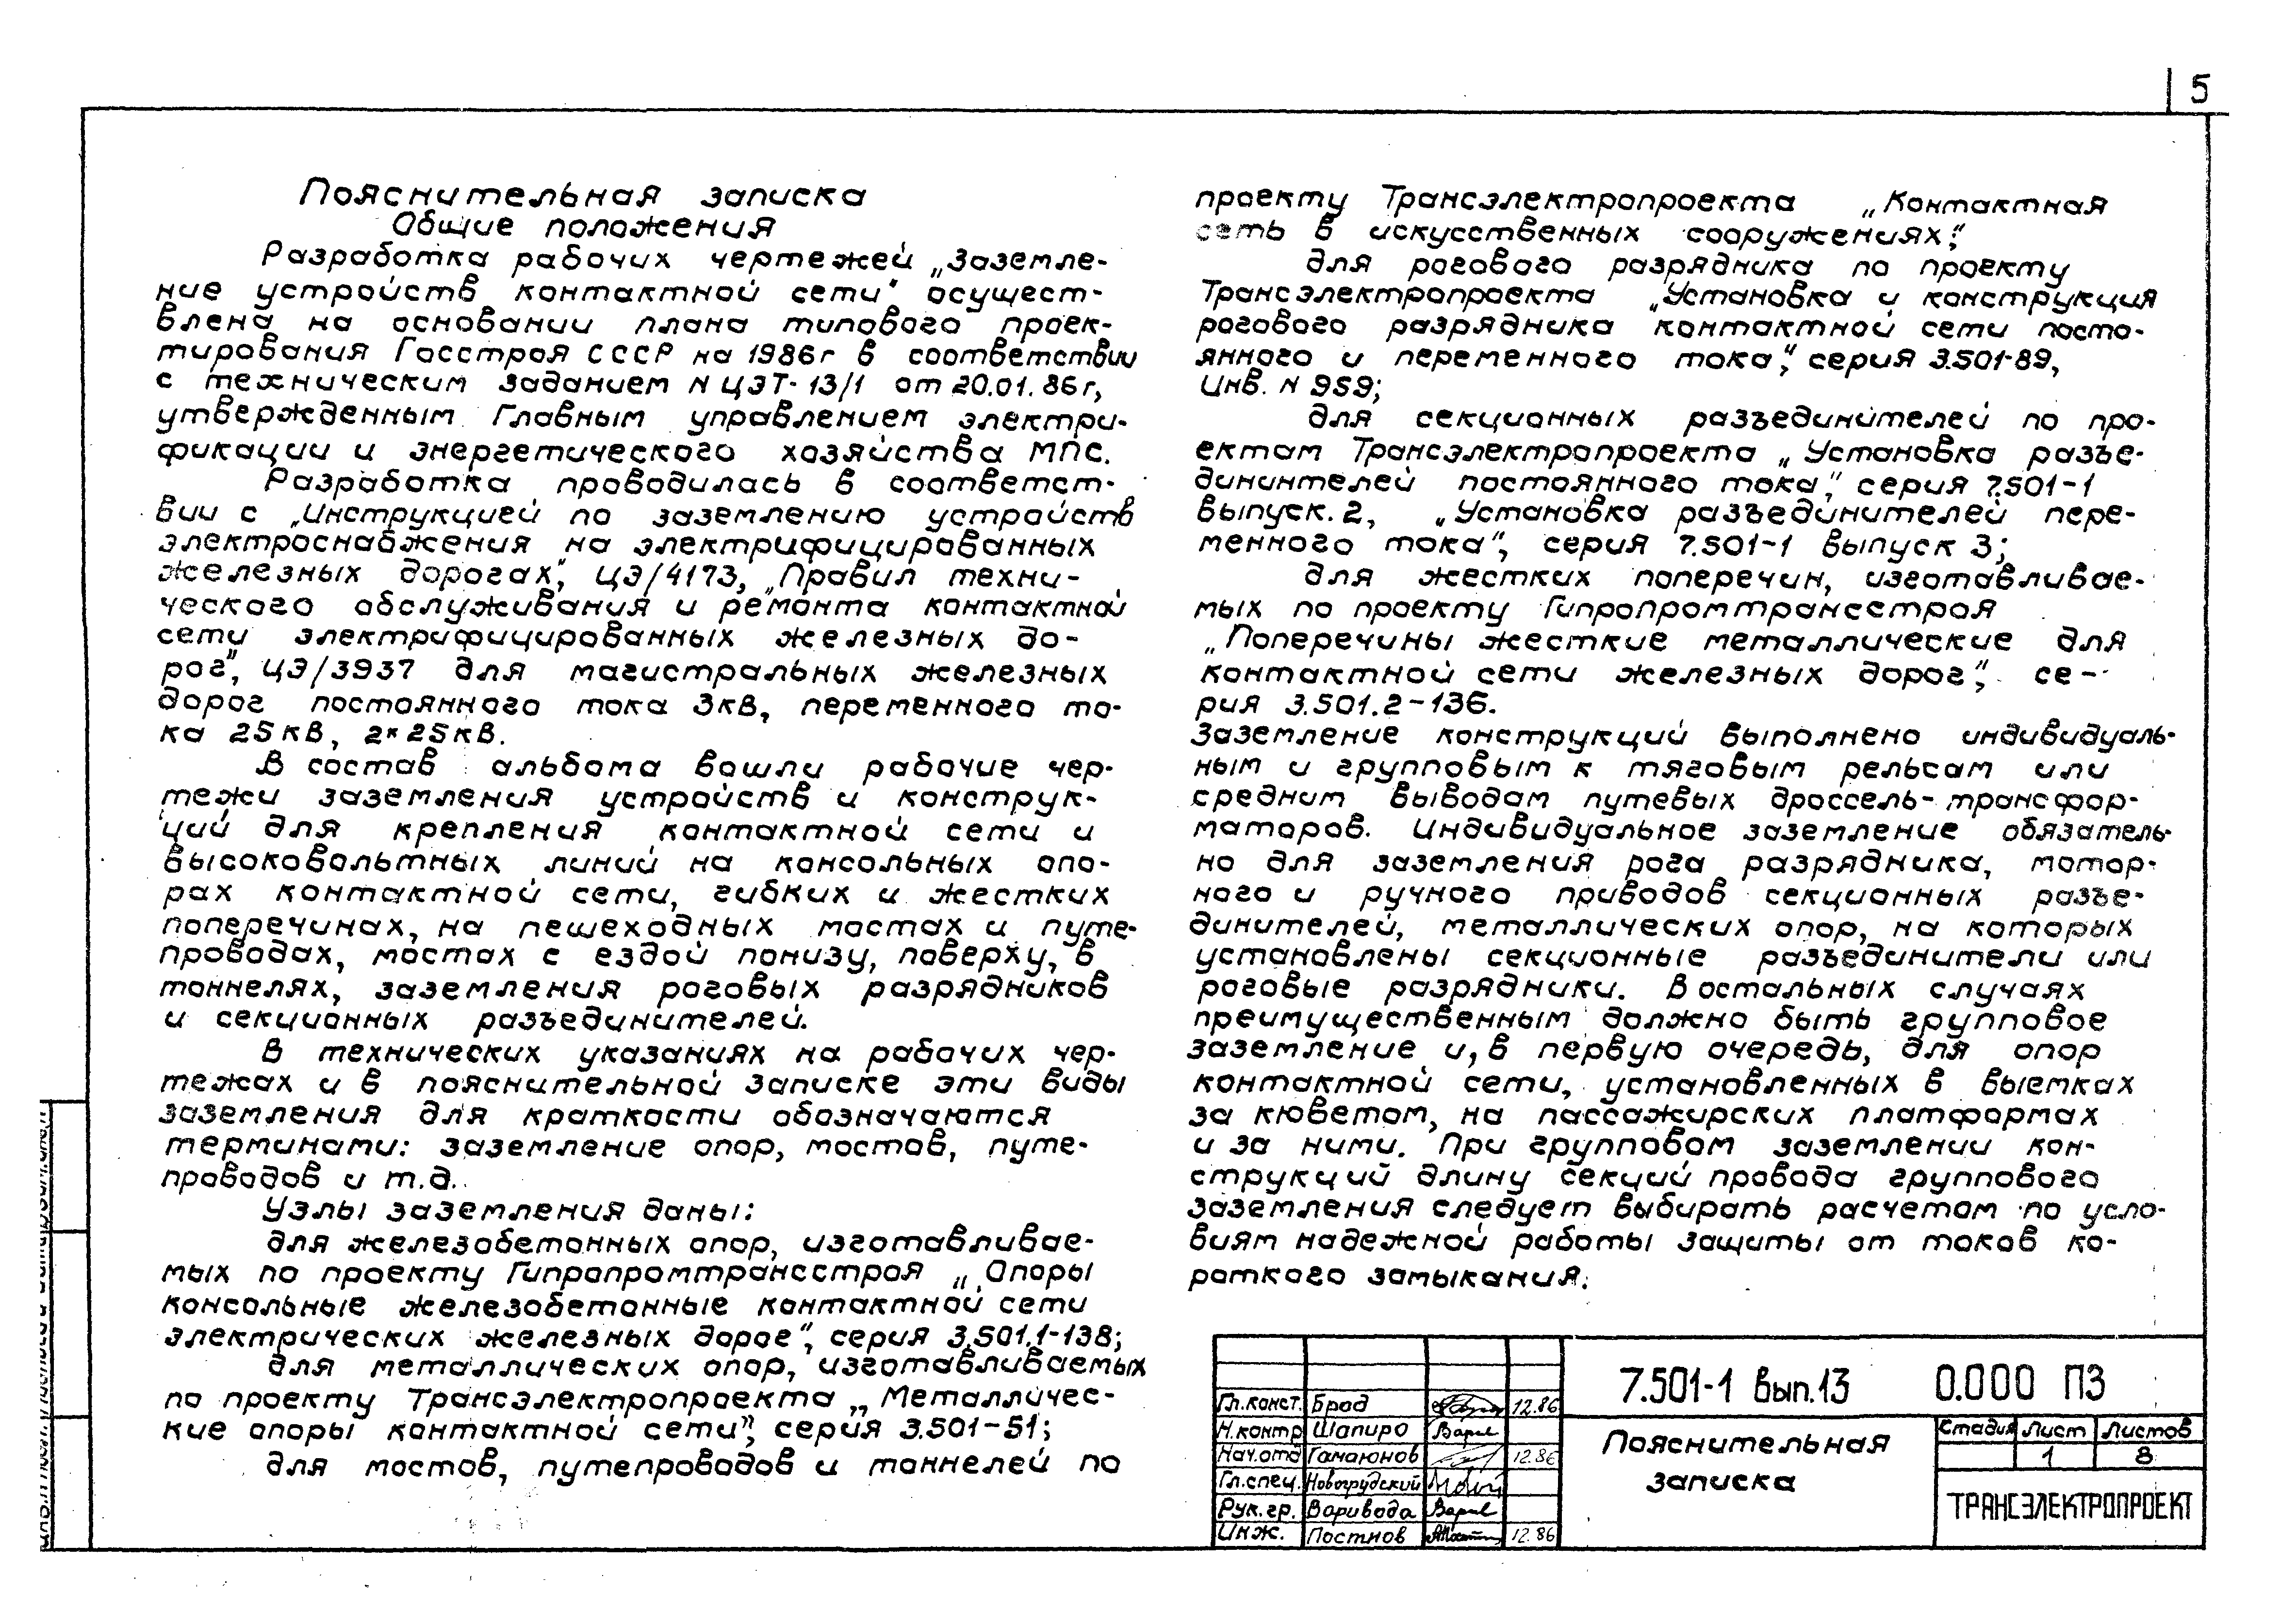 5
Пояснительная записка
Общие положения
Разработка рабочих чертежей „Заземле-
ние устройств контактной сети" осущест-
влена на основании плана типового проек-
тирования Госстроя СССР на 1986г в соответствии
с техническим заданием N ЦЭТ-13/1 от 20.01.86г,
утвержденным Главным управлением электри-
фикации и энергетического хозяйства МПС.
Разработка проводилась в соответст-
вии с „Инструкцией по заземлению устройств
электроснабжения на электрифицированных
железных дорогах", ЦЭ/4173, „Правил техни-
ческого обслуживания и ремонта контактной
сети электрифицированных железных до-
рог", ЦЭ/3937 для магистральных железных
дорог постоянного тока 3кв, переменного то-
ка 25кв, 2×25кв.
В состав альбома вошли рабочие чер-
тежи заземления устройств и конструк-
ций для крепления контактной сети и
высоковольтных линий на консольных опо-
рах контактной сети, гибких и жестких
поперечинах, на пешеходных мостах и путе-
проводах, мостах с ездой понизу, поверху, в
тоннелях, заземления роговых разрядников
и секционных разъединителей.
В технических указаниях на рабочих чер-
тежах и в пояснительной записке эти виды
заземления для краткости обозначаются
терминами: заземление опор, мостов, путе-
проводов и т.д.
Узлы заземления даны:
для железобетонных опор, изготавливае-
мых по проекту Гипропромтрансстроя „Опоры
консольные железобетонные контактной сети
электрических железных дорог", серия 3.501.1-138;
для металлических опор, изготавливаемых
по проекту Трансэлектропроекта „Металличес-
кие опоры контактной сети", серия 3.501-51;
для мостов, путепроводов и тоннелей по
проекту Трансэлектропроекта „Контактная
сеть в искусственных сооружениях";
для рогового разрядника по проекту
Трансэлектропроекта „Установка и конструкция
рогового разрядника контактной сети посто-
янного и переменного тока", серия 3.501-89,
Инв. N 959;
для секционных разъединителей по про-
ектам Трансэлектропроекта „Установка разъе-
динителей постоянного тока", серия 7.501-1
выпуск.2, „Установка разъединителей пере-
менного тока", серия 7.501-1 выпуск 3;
для жестких поперечин, изготавливае-
мых по проекту Гипропромтрансстроя
„Поперечины жесткие металлические для
контактной сети железных дорог", се-
рия 3.501.2-136.
Заземление конструкций выполнено индивидуаль-
ным и групповым к тяговым рельсам или
средним выводам путевых дроссель-трансфор-
маторов. Индивидуальное заземление обязатель-
но для заземления рога разрядника, мотор-
ного и ручного приводов секционных разъе-
динителей, металлических опор, на которых
установлены секционные разъединители или
роговые разрядники. В остальных случаях
преимущественным должно быть групповое
заземление и, в первую очередь, для опор
контактной сети, установленных в выемках
за кюветом, на пассажирских платформах
и за ними. При групповом заземлении кон-
струкций длину секций провода группового
заземления следует выбирать расчетом по усло-
виям надежной работы защиты от токов ко-
роткого замыкания.
Гл.конст. Брод 12.86
Н.контр Шапиро
Нач.отд Гамаюнов 12.86
Гл.спец. Новогрудский
Рук.гр. Варивода
Инж. Постнов 12.86
7.501-1 вып.13 0.000 ПЗ
Пояснительная
записка
Стадия Лист Листов
1 8
ТРАНСЭЛЕКТРОПРОЕКТ